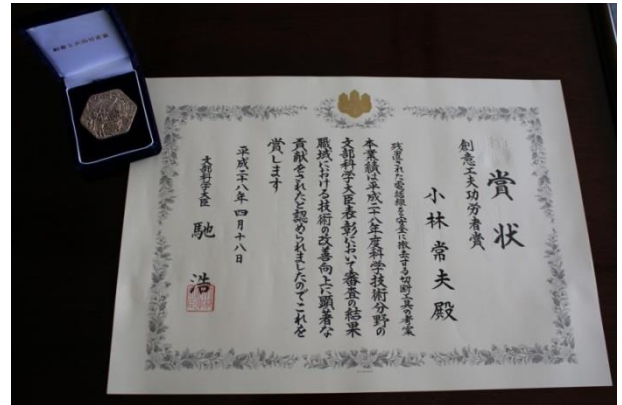 賞状
創意工夫功労者賞
小林常夫殿
残置された電話線を安全に撤去する切断工具の考案
本業績は平成二十八年度科学技術分野の
文部科学大臣表彰において審査の結果
職域における技術の改善向上に顕著な
貢献をされたと認められましたのでこれを
賞します
平成二十八年四月十八日
文部科学大臣 馳浩